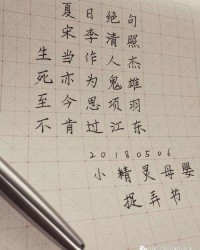 夏日绝句
宋李清照
生当作人杰
死亦为鬼雄
至今思项羽
不肯过江东
20180506
小精灵母婴
捉弄节